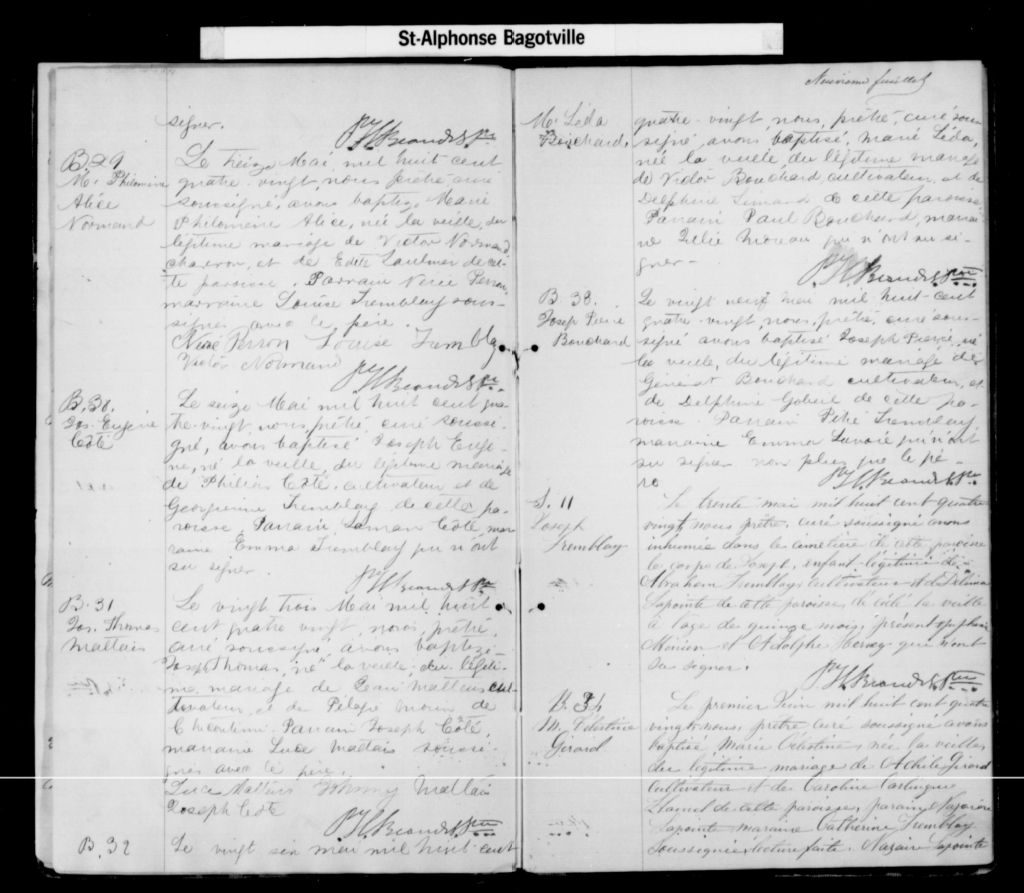 St-Alphonse Bagotville
signer.
B. 29
M. Philomène
Alice
Normand
Le treize Mai mil huit cent
quatre-vingt, nous prêtre, curé
soussigné, avons baptisé Marie
Philomène Alice, née la veille, du
légitime mariage de Victor Normand
charron, et de Edith de cet-
te paroisse. Parrain Nérée Perron,
marraine Louise Tremblay sous-
signés avec le père.
Nérée Perron Louise Trembla
Victor Normand
B. 30.
Jos. Eugène
Côté
Le seize Mai mil huit cent qua-
tre-vingt, nous, prêtre, curé sousse-
gné, avons baptisé Joseph Eugè-
ne, né la veille, du légitime mariage
de Philias Côté, cultivateur et de
Georgienne Tremblay de cette pa-
roisse. Parrain Côté, mar-
raine Emma Tremblay qui n'ont
su signer.
B. 31
Jos. Thomas
Maltais
Le vingt trois Mai mil huit
cent quatre vingt, nous, prêtre,
curé soussigné, avons baptizé
Joseph Thomas, né la veille, du légiti-
me mariage de Jean Maltais cul-
tivateur, et de Pélagie Morin de
Chicoutimi. Parrain Joseph Côté,
marraine Luce Maltais soussi-
gnés avec le père.
Luce Maltais Johnny Maltais
Joseph Coté
B. 32
Le vingt six mai mil huit-cent
Neuvième feuillet
M. Léda
Bouchard
quatre-vingt, nous, prêtre, curé sous-
signé avons baptisé, Marie Léda,
née la veille du légitime mariage
de Victor Bouchard, cultivateur, et de
Delphine Simard de cette paroisse
Parrain Paul Bouchard, marrai-
ne Julie Moreau qui n'ont su si-
gner-
B. 33.
Joseph Pierre
Bouchard
Le vingt neuf Mai mil huit-cent
quatre-vingt, nous, prêtre, curé sous-
signé avons baptisé Joseph Pierre, né
la veille, du légitime mariage de
Bouchard cultivateur, et
de Delphine Gobeil de cette pa-
roisse. Parrain Tremblay,
marraine Emma Lavoie qui n'ont
su signer non plus que le pè-
re
S. 11
Joseph
Tremblay
Le trente mai mil huit cent quatre
vingt, nous prêtre, curé soussigné avons
inhumé dans le cimetière de cette paroisse
le corps de Joseph, enfant légitime de
Abraham Tremblay cultivateur et de
Lapointe de cette paroisse, décédé la veille
à l'âge de quinze mois, présent
et Adolphe qui n'ont
su signer.
B. 34
M. Célestine
Girard
Le premier Juin mil huit cent quatre
vingt, nous, prêtre curé soussigné avons
baptisé Marie Célestine, née la veille
du légitime mariage de Achile Girard
cultivateur et de Caroline
de cette paroisse, parain Nazaire
Lapointe maraine Catherine Tremblay
soussignés, lecture faite. Nazaire Lapointe